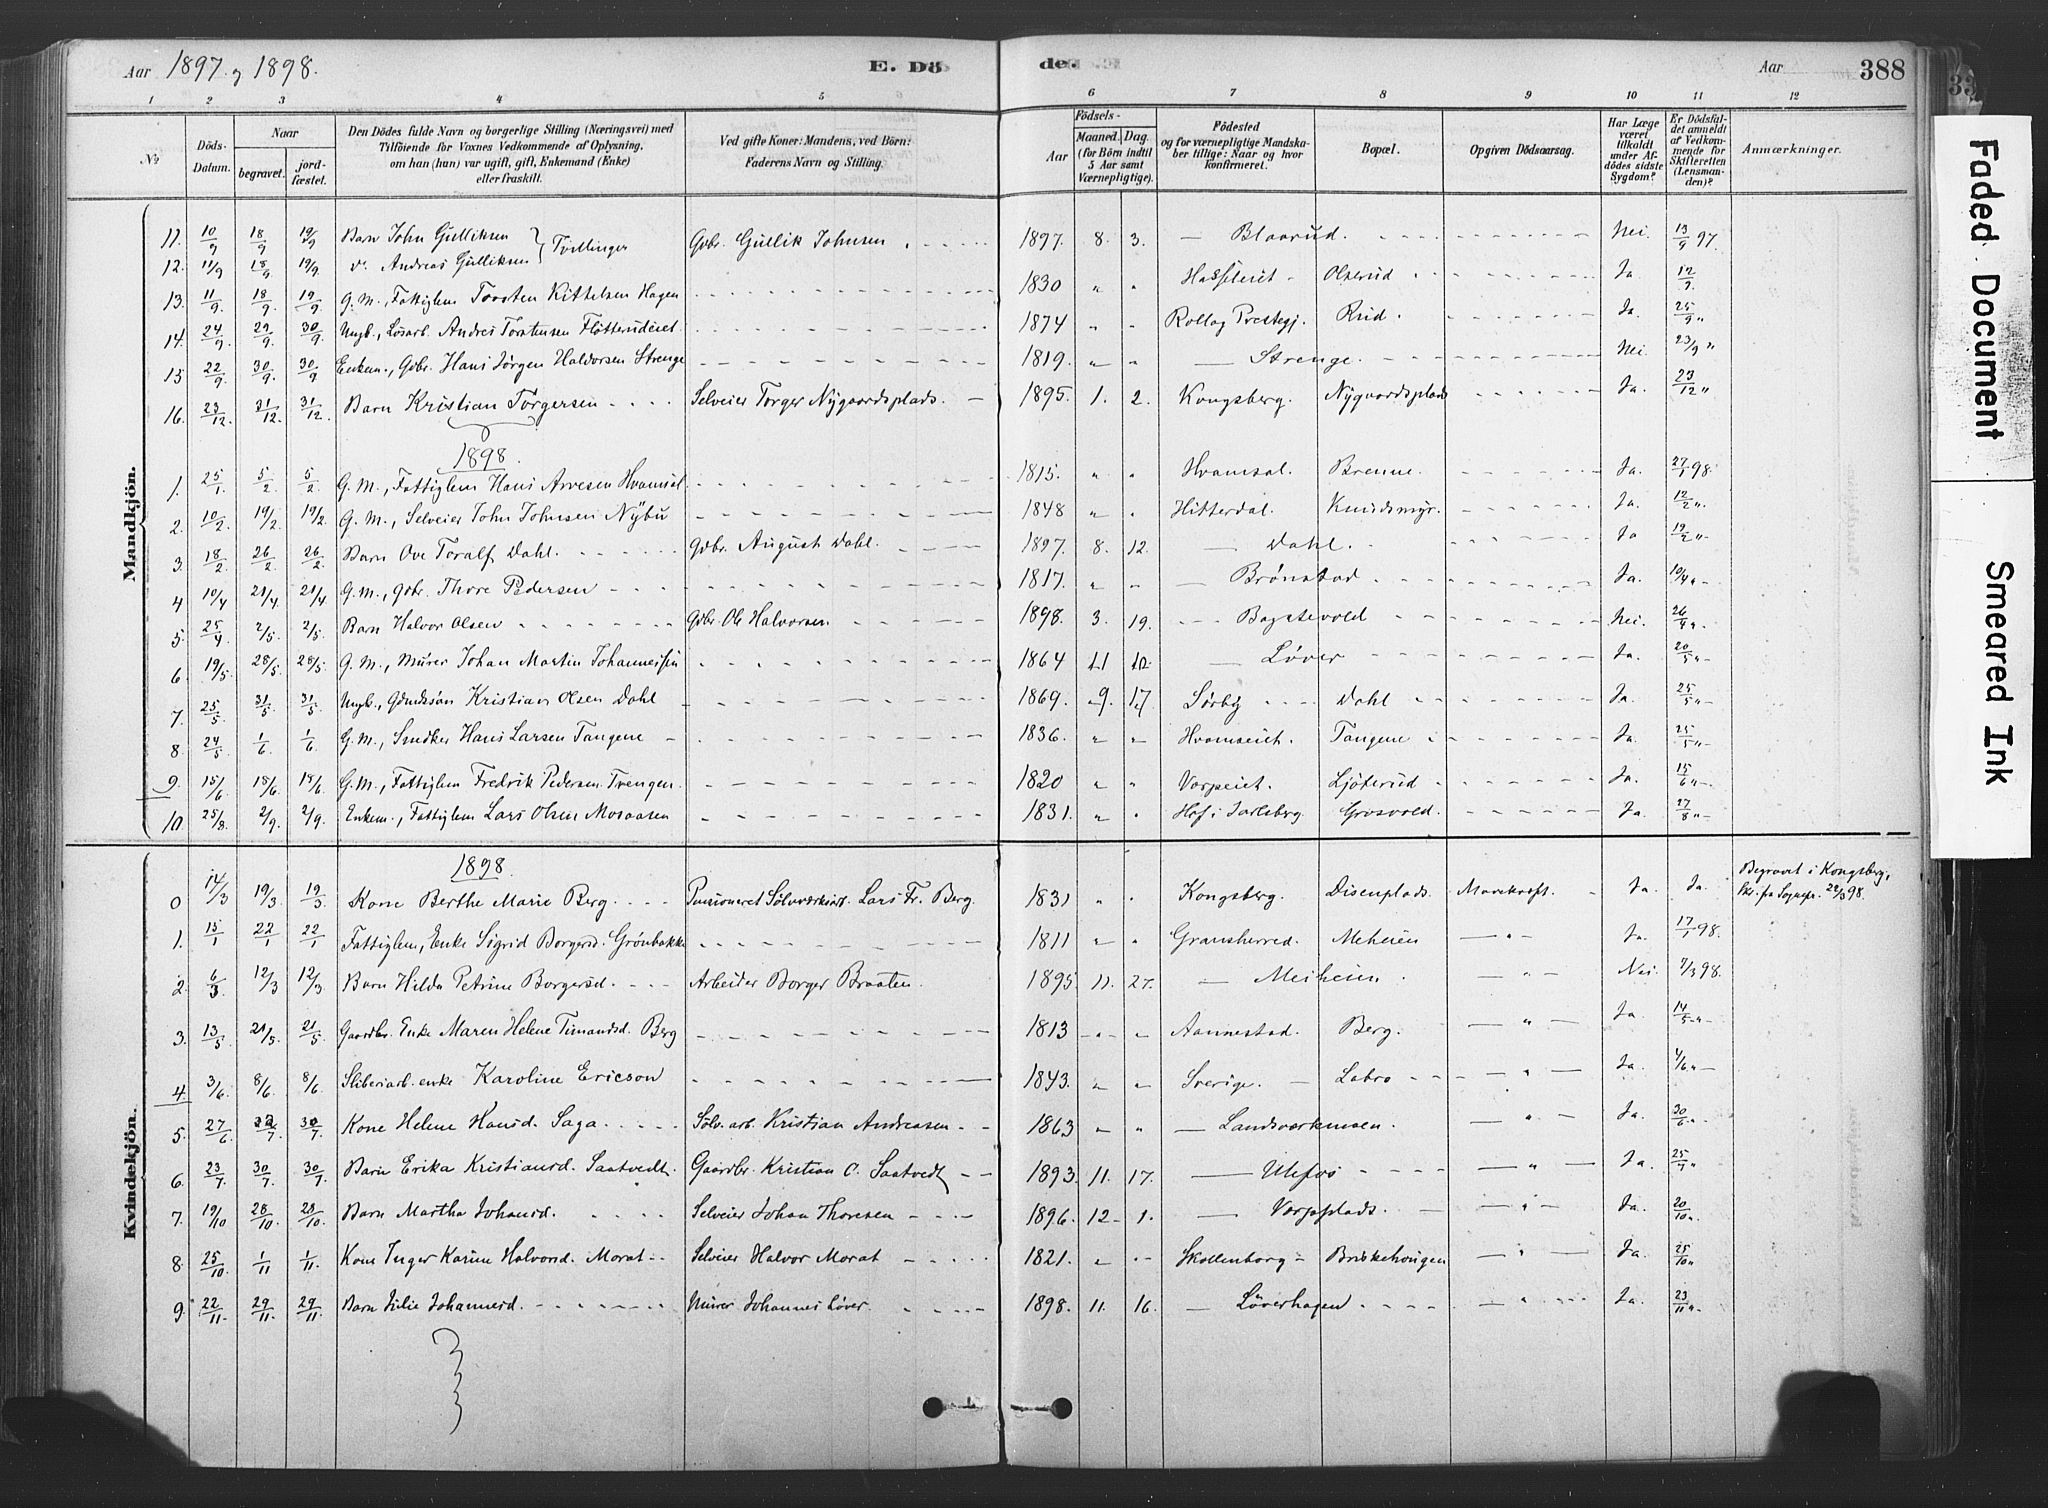 Aar 1897 og 1898.
E. Dö
de.
Aar
388
1 2 3 4 5 6 7 8 9 10 11 12
No
Döds-Datum.
Naar
begravet.
jordfæstet.
Den Dödes fulde Navn og borgerlige Stilling (Næringsvei) med
Tilföiende for Voxnes Vedkommende af Oplysning,
om han (hun) var ugift, gift, Enkemand (Enke)
eller fraskilt.
Ved gifte Koner: Mandens, ved Börn:
Faderens Navn og Stilling.
Födsels-
Aar
Maaned. Dag.
(for Börn indtil
5 Aar samt
Værnepligtige).
Födested
og for værnepligtige Mandska-
ber tillige: Naar og hvor
konfirmeret.
Bopæl.
Opgiven Dödsaarsag.
Har Læge
været
tilkaldt
under Af-
dödes sidste
Sygdom?
Er Dödsfal-
det anmeldt
af Vedkom-
mende for
Skifteretten
(Lensman-
den)?
Anmærkninger.
Mandkjön.
11. 10/9 18/9 19/9 Barn John Gulliksen } Tvillinger Gbr. Gullik Johnsen 1897. 8. 3. — Blaarud. Nei. 13/9 97.
12. 11/9 18/9 19/9. do Andreas Gulliksen
13. 11/9 18/9. 19/9. G. M., Fattiglem Torsten Kittelsen Hagen 1830 " " Olserud Ja. 12/9.
14. 24/9 29/9. 30/9. Ungk., Løsarb. Andres Torstensen 1874 " " Rollag Prestegj. Rud. Ja. 25/9 "
15 22/9. 30/9. 30/9 Enkem., Gbr. Hans Jørgen Haldorsen Strenge 1819. " " — Strenge. Nei. 23/9 "
16. 23/12. 31/12 31/12. Barn Kristian Torgersen Selveier Torger Nygaardsplads. 1895. 1. 2. Kongsberg. Nygaardsplads Ja. 23/12 "
1898.
1. 25/1 5/2 5/2. G. M., Fattiglem Hans Arvesen Hvamsal 1815. " " Hvamsal. Brenne. Ja. 27/1 98.
2. 10/2 19/2. 19/2. G. M., Selveier John Johnsen Nybu 1848 " " Hitterdal. Knudsmyr. Ja. 12/2 "
3. 18/2 26/2 26/2. Barn Ove Toralf Dahl. Gbr. August Dahl. 1897. 8. 12. — Dahl. Ja 19/2 "
4 10/4 21/4. 21/4 G. M., Gbr. Thore Pedersen 1817. " " — Brønstad Ja. 10/4 "
5. 25/4 2/5. 2/5. Barn Halvor Olsen Gbr. Ole Halvorsen 1898. 3. 19. Bagstevold Nei. 26/4 "
6 19/5. 28/5. 28/5. G. M., Murer Johan Martin Johannessen 1864 11 10. — Løver Ja. 20/5 "
7. 25/5 31/5 31/5 Ungk., Kristian Olsen Dahl 1869. 9. 17 Sørby Dahl Ja. 25/5 "
8. 24/5 1/6 1/6. G. M., Snedker Hans Larsen Tangene 1836. " " Hvamseiet. Tangene Ja. 25/5 "
9. 15/6 18/6. 18/6. G. M., Fattiglem Fredrik Pedersen Trengen. 1820 " " Vorpeiet. Ljøterud Ja. 15/6 "
10. 25/8. 2/9. 2/9. Enkem., Fattiglem Lars Olsen Mosaasen 1831. " " Hof i Jarlsberg. Grosvold. Ja. 27/8 "
Kvindekjön.
1898.
0 14/3 19/3 19/3. Kone Berthe Marie Berg. Pensioneret Sølvværksarb. Lars Fr. Berg. 1831 " " Kongsberg. Disenplads. Marekraft. Ja. Ja. Begravet i Kongsberg, Skr. fra Sognepr. 22/3 98.
1. 15/1 22/1 22/1 Fattiglem, Enke Sigrid Borgersd. Grønbakke 1811 " " Gransherred. Meheien — " — Ja. 17/1 98.
2. 6/3 12/3 12/3 Barn Hilda Petrine Borgersd. Arbeider Borger Braaten. 1895. 11. 27. — Meiheien. — " — Nei. 7/3 98.
3. 13/5 21/5. 21/5 Gaardbr. Enke Maren Helene Timandsd. Berg 1813 " " Aannestad. Berg. — " — Ja. 14/5 "
4. 3/6. 8/6. 8/6. Sliberiarb. enke Karoline Ericson 1843. " " Sverige. Labro — " — Ja. 4/6 "
5. 27/6 30/7 30/7 Kone Helene Hansd. Saga Sølv. arb. Kristian Andreasen 1863 " " — Landsværkmoen. — " — Ja. 30/6 "
6. 23/7. 30/7. 30/7 Barn Erika Kristiansd. Saatvedt. Gaardbr. Kristian O. Saatvedt 1893. 11. 17. — Ulefos — " — Ja. 25/7 "
7. 19/10 28/10. 28/10. Barn Martha Johansd. Selveier Johan Thoresen 1896. 12 1. — Vorpplads. — " — Ja. 20/10 "
8. 25/10 1/11 1/11. Kone Inger Karine Halvorsd. Morat Selveier Halvor Morat 1821. " " Skollenborg Briskehougen — " — Ja. 25/10 "
9. 22/11 29/11 29/11 Barn Julie Johannesd. Murer Johannes Løver. 1898. 11. 16. — Løverhagen — " — Ja. 23/11 "
Faded Document
Smeared Ink